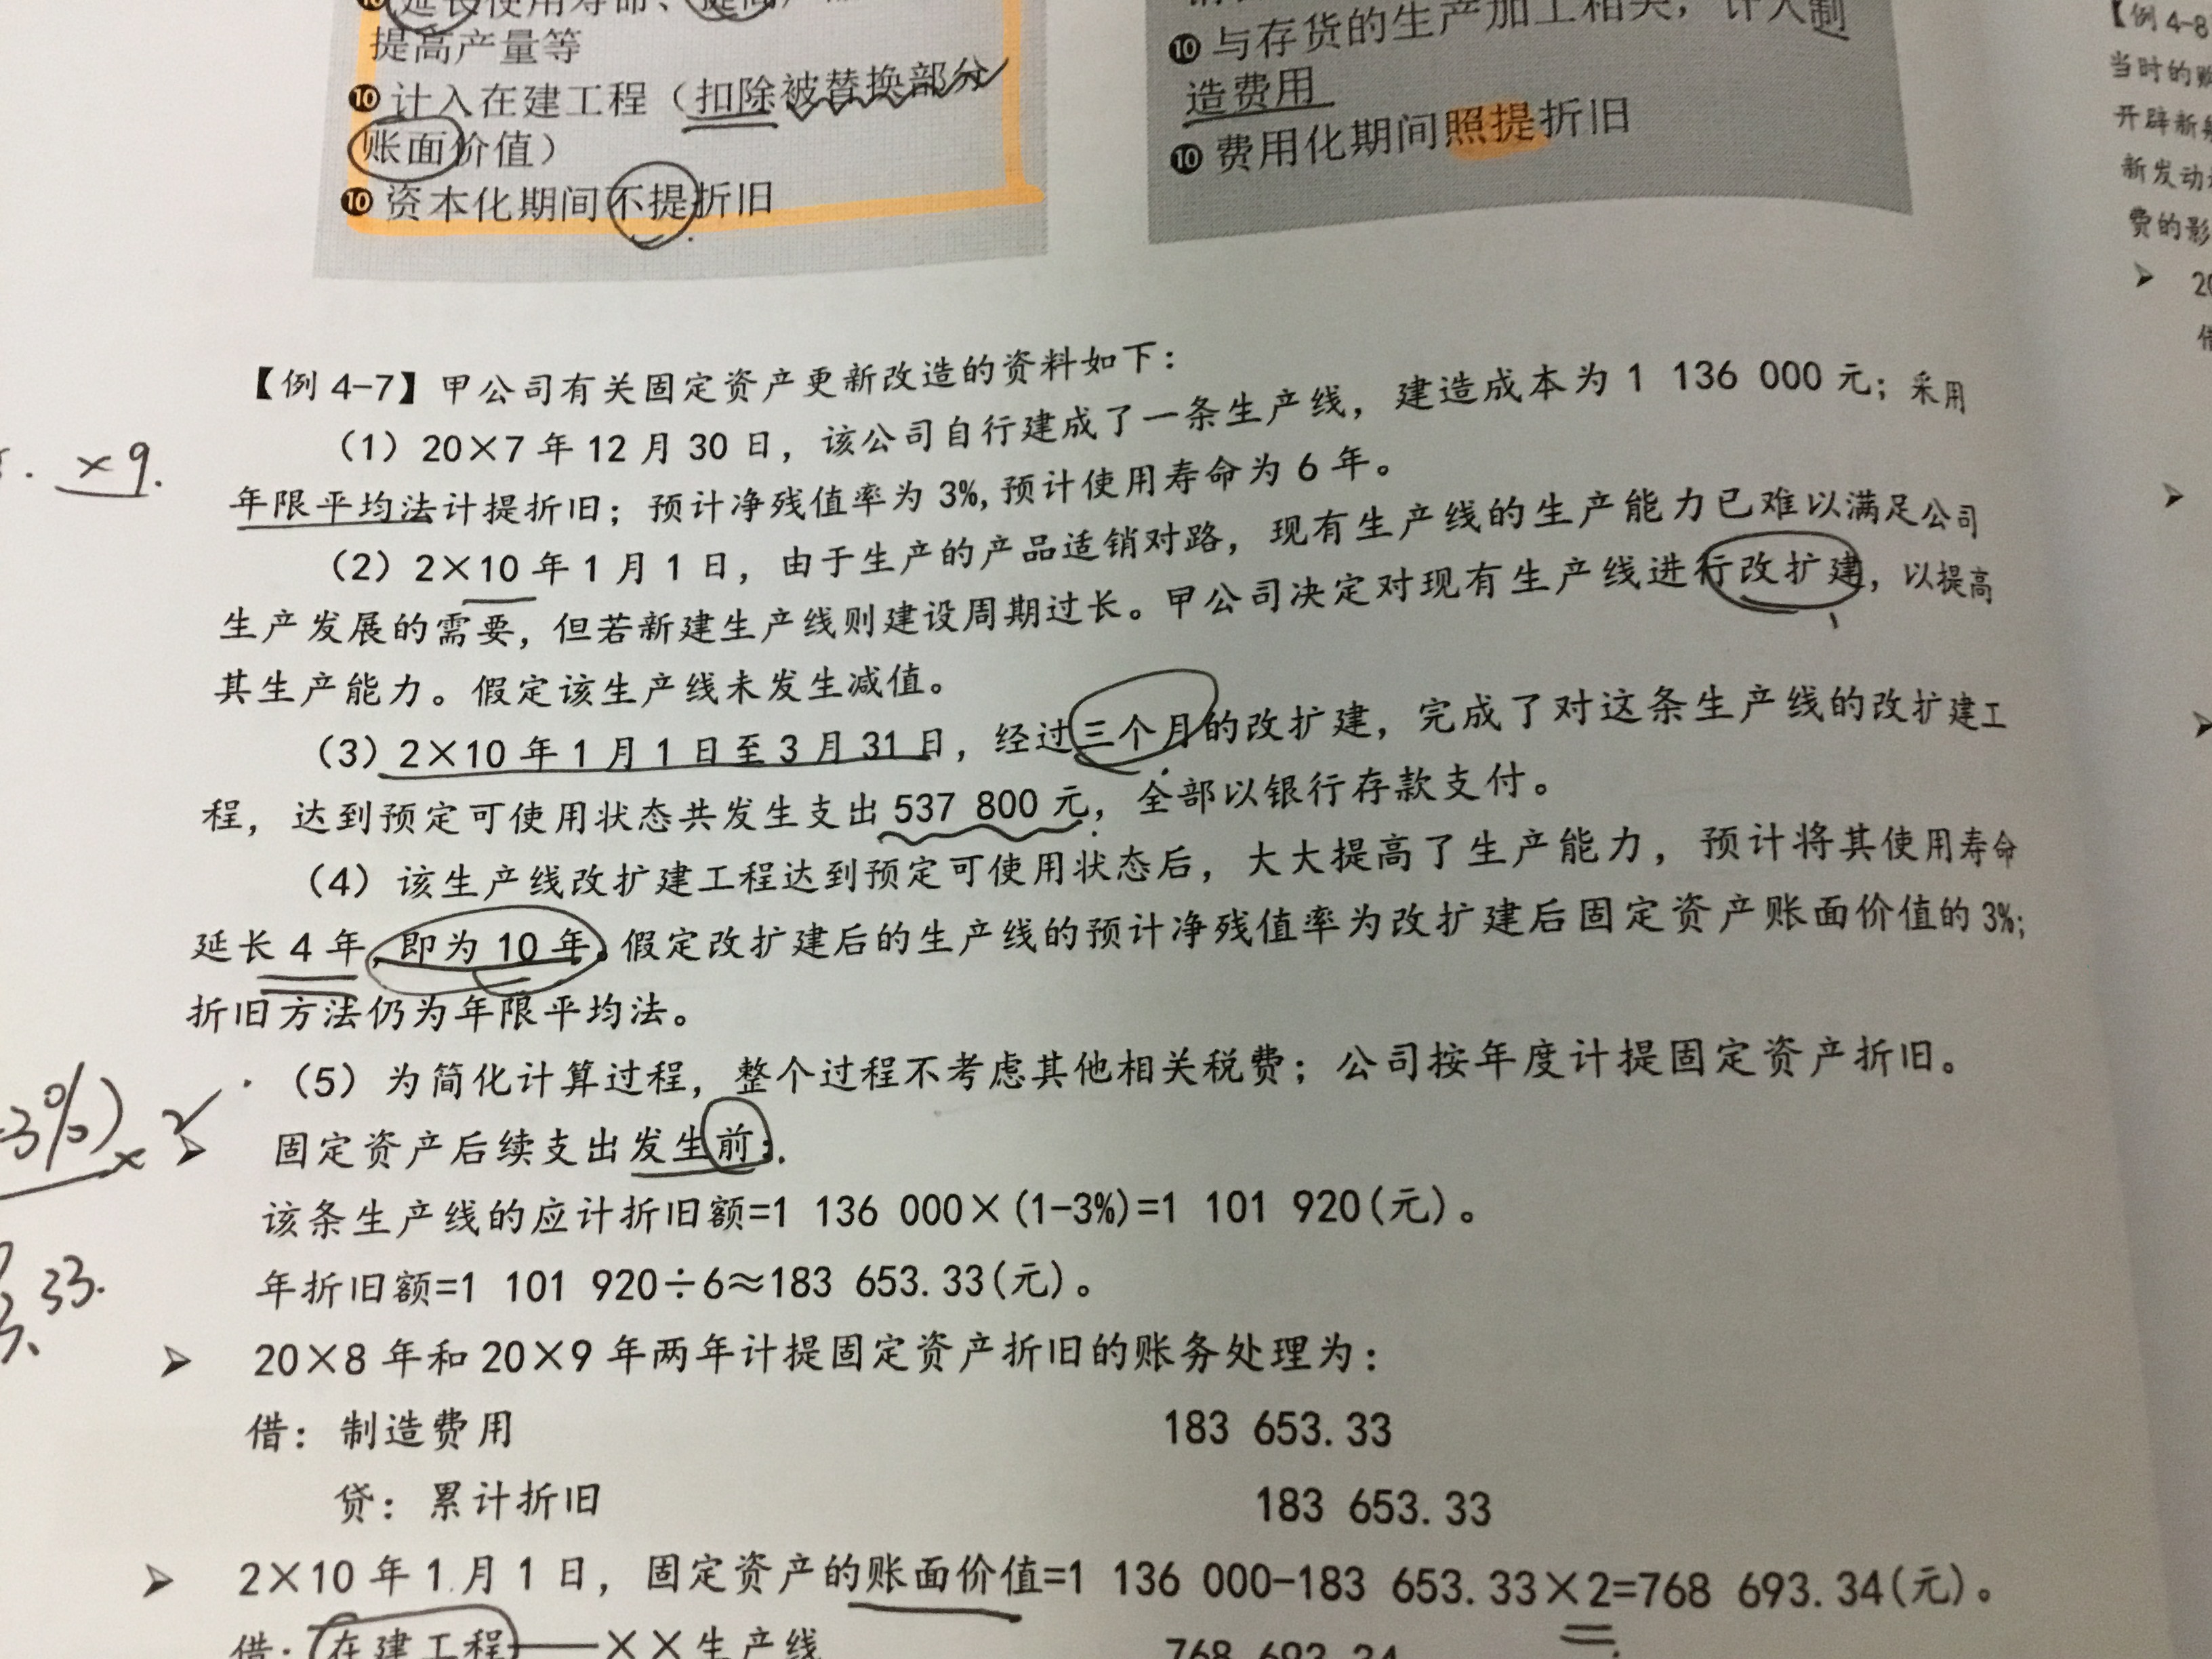 延长使用寿命、提高
提高产量等
❿ 计入在建工程（扣除被替换部分
账面价值）
❿ 资本化期间不提折旧
❿ 与存货的生产加工相关，计入制
造费用
❿ 费用化期间照提折旧
【例 4-7】甲公司有关固定资产更新改造的资料如下：
（1）20×7 年 12 月 30 日，该公司自行建成了一条生产线，建造成本为 1 136 000 元；采用
年限平均法计提折旧；预计净残值率为 3%,预计使用寿命为 6 年。
（2）2×10 年 1 月 1 日，由于生产的产品适销对路，现有生产线的生产能力已难以满足公司
生产发展的需要，但若新建生产线则建设周期过长。甲公司决定对现有生产线进行改扩建，以提高
其生产能力。假定该生产线未发生减值。
（3）2×10 年 1 月 1 日至 3 月 31 日，经过三个月的改扩建，完成了对这条生产线的改扩建工
程，达到预定可使用状态共发生支出 537 800 元，全部以银行存款支付。
（4）该生产线改扩建工程达到预定可使用状态后，大大提高了生产能力，预计将其使用寿命
延长 4 年，即为 10 年。假定改扩建后的生产线的预计净残值率为改扩建后固定资产账面价值的 3%;
折旧方法仍为年限平均法。
（5）为简化计算过程，整个过程不考虑其他相关税费；公司按年度计提固定资产折旧。
➢ 固定资产后续支出发生前：
该条生产线的应计折旧额=1 136 000×(1-3%)=1 101 920(元)。
年折旧额=1 101 920÷6≈183 653.33(元)。
➢ 20×8 年和 20×9 年两年计提固定资产折旧的账务处理为：
借：制造费用 183 653.33
贷：累计折旧 183 653.33
➢ 2×10 年 1 月 1 日，固定资产的账面价值=1 136 000-183 653.33×2=768 693.34(元)。
借：在建工程——××生产线 768 693.34
×9.
-3%)×2
33.
【例 4-8
当时的购
开辟新
新发动
费的影
➢ 20
借